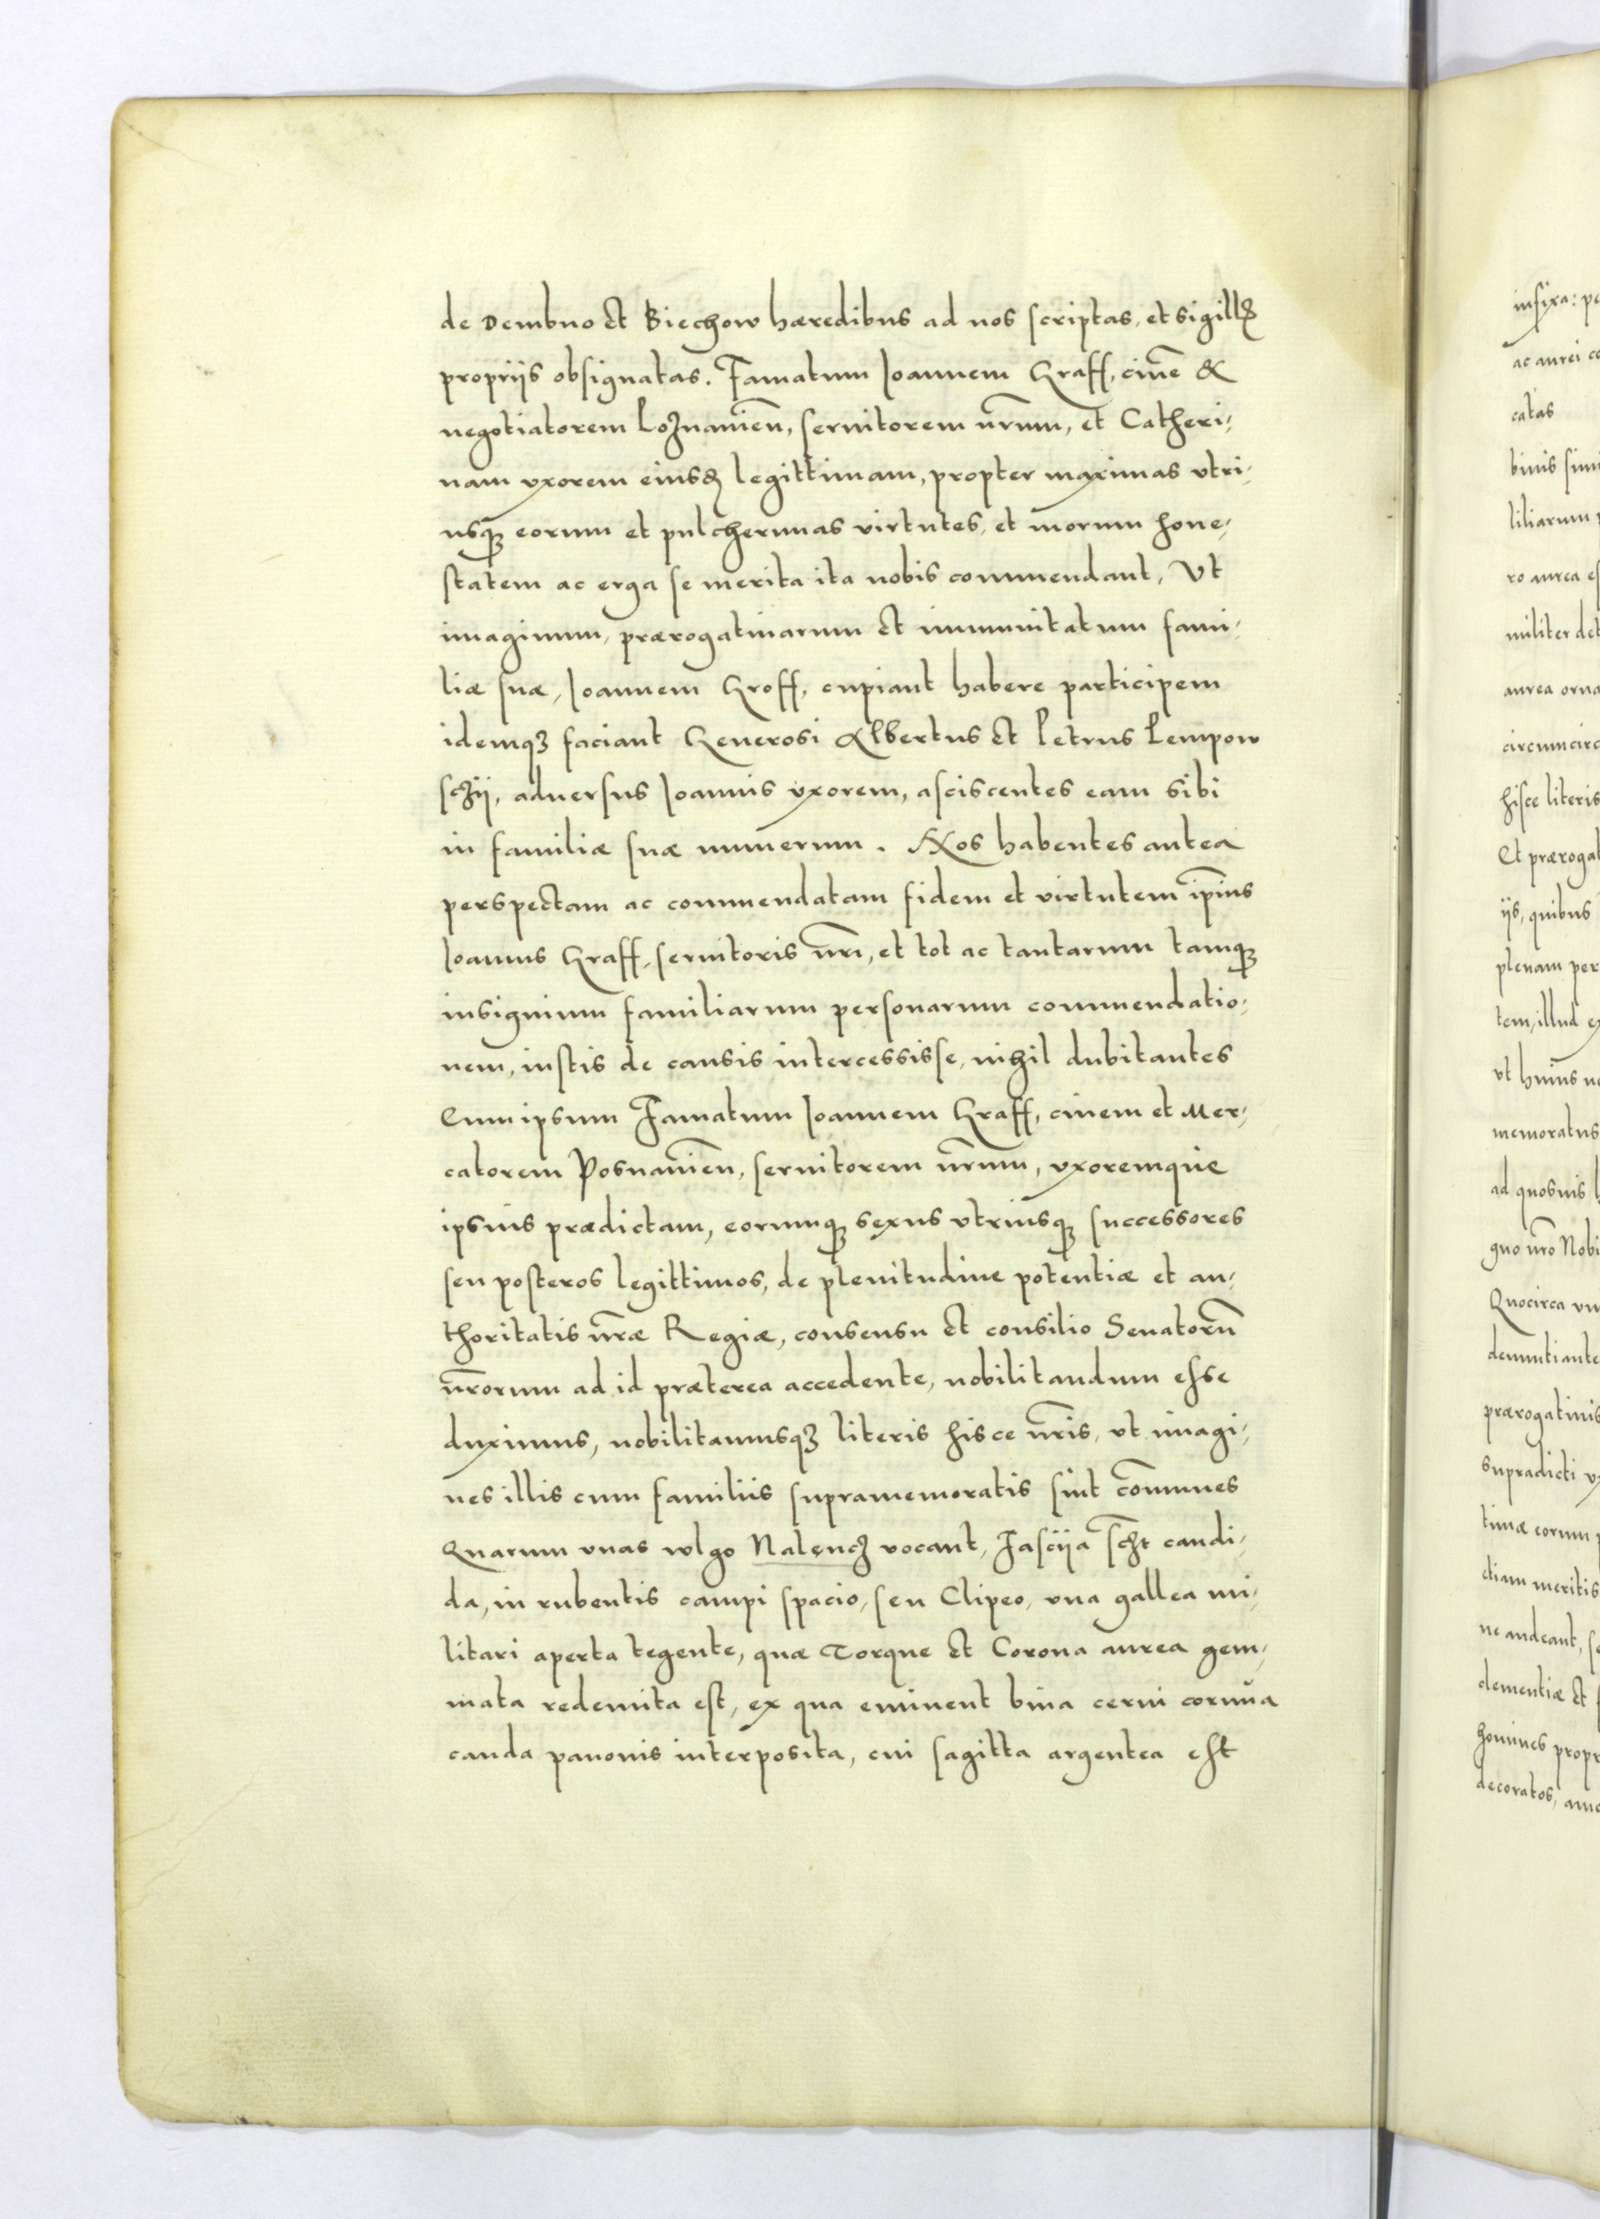 de Dembno et Biechow hæredibus ad nos scriptas, et sigillꝭ
propriis obsignatas. Famatum Ioannem Graff, ciuē &
negotiatorem Poznanieñ, seruitorem nr̄um, et Catheri,
nam vxorem eiusꝭ legittimam, propter maximas vtri,
usqꝫ eorum et pulcherimas virtutes, et morum hone,
statem ac erga se merita ita nobis commendant, Vt
imaginum, prærogatiuarum et immunitatum fami,
liæ suæ, Ioannem Groff, cupiant habere participem
idemqꝫ faciant Generosi Albertus et Petrus Pempow
sczÿ, aduersus Ioannis vxorem, asciscentes eam sibi
in familiæ suæ numerum. Nos habentes antea
perspectam ac commendatam fidem et virtutem ip̄ius
Ioannis Graff, seruitoris nr̄i, et tot ac tantarum tamqꝫ
insignium familiarum personarum commendatio,
nem, iustis de causis intercessisse, nihil dubitantes
Eum ipsum Famatum Ioannem Graff, ciuem et Mer,
catorem Posnanieñ, seruitorem nr̄um, vxoremque
ipsius prædictam, eorumqꝫ sexus vtriusqꝫ successores
seu posteros legittimos, de plenitudine potentiæ et au,
thoritatis nr̄æ Regiæ, consensu et consilio Senatorū
nr̄orum ad id præterea accedente, nobilitandum esse
duximus, nobilitamusqꝫ literis hisce nr̄is, vt imagi,
nes illis cum familiis supramemoratis sint com̄unes
Quarum vnas wlgo Nalencz vocant, Fasciia sczt candi,
da, in rubentis campi spacio, seu Clipeo, vna gallea mi,
litari aperta tegente, quæ Torque et Corona aurea gem,
mata redemita est, ex qua eminent bina cerui cornua
cauda pauonis interposita, cui sagitta argentea est
infixa: 
ac aurei
catas
binis
liliarum
ro aurea
militer
aurea
hisce literis
Et
iis, quibus
plenam
tem, illud
vt huius
memoratus
ad quosuis
gno nr̄o
Quocirca
prærogatiuis
supradicti
timæ eorum
etiam meritis
ne audeant,
clementiæ et
homines
decoratos,